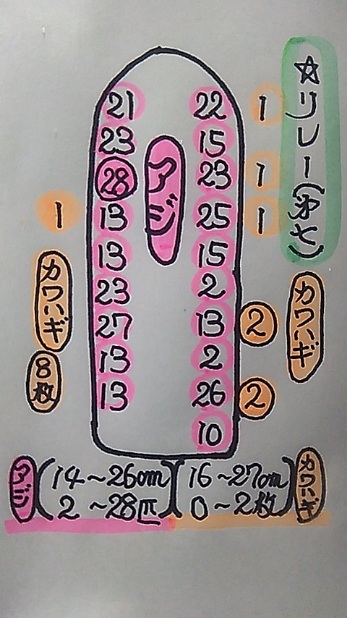 ☆リレー(弟七)
21 22 1
23 15
アジ
28 23 1
1 13 25 1
13 15
カワハギ
23 2
カワハギ
27 13 2
8枚
13 2
13 26 2
10
アジ (14～26cm) (16～27cm) カワハギ
2～28匹 0～2枚